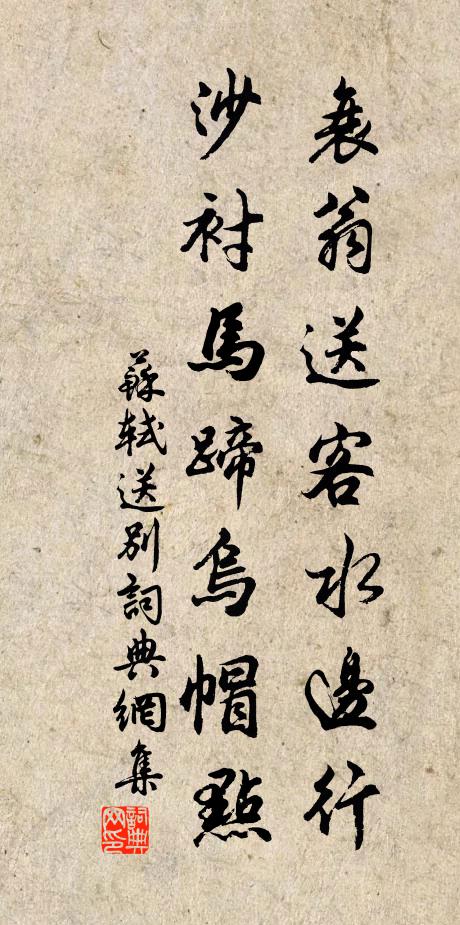 衰翁送客水邊行
沙衬馬蹄烏帽點
蘇軾送別詞典網集
詞典网印